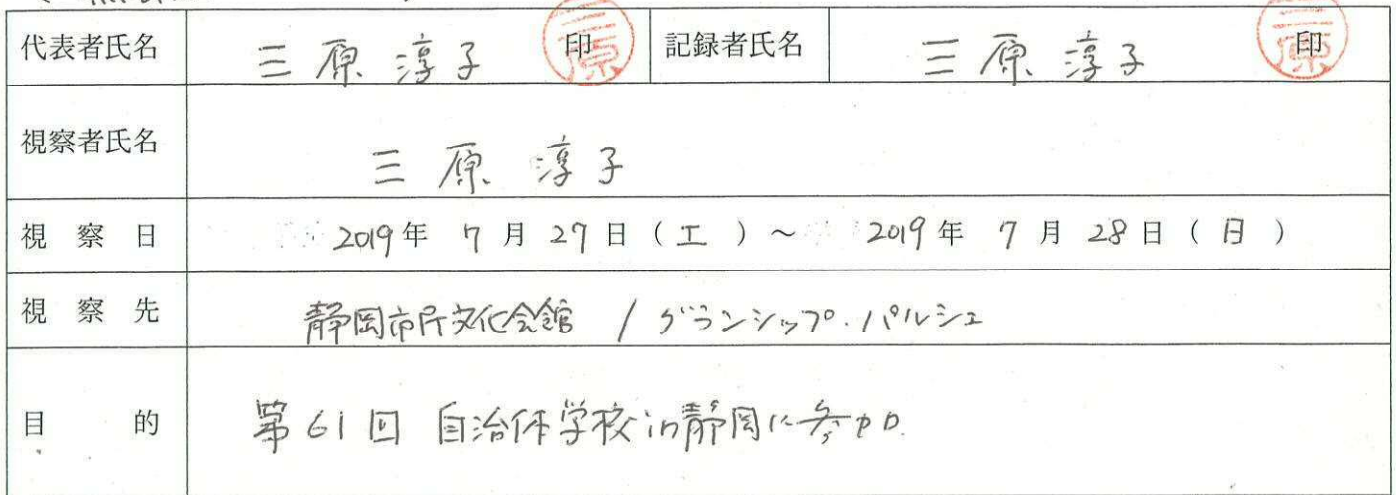 代表者氏名 三原淳子 印 三原 記録者氏名 三原淳子 印 三原
視察者氏名 三原淳子
視察日 2019年 7月 27日(土)~ 2019年 7月 28日(日)
視察先 静岡市民文化会館 / グランシップ・パルシェ
目的 第61回 自治体学校in静岡に参加